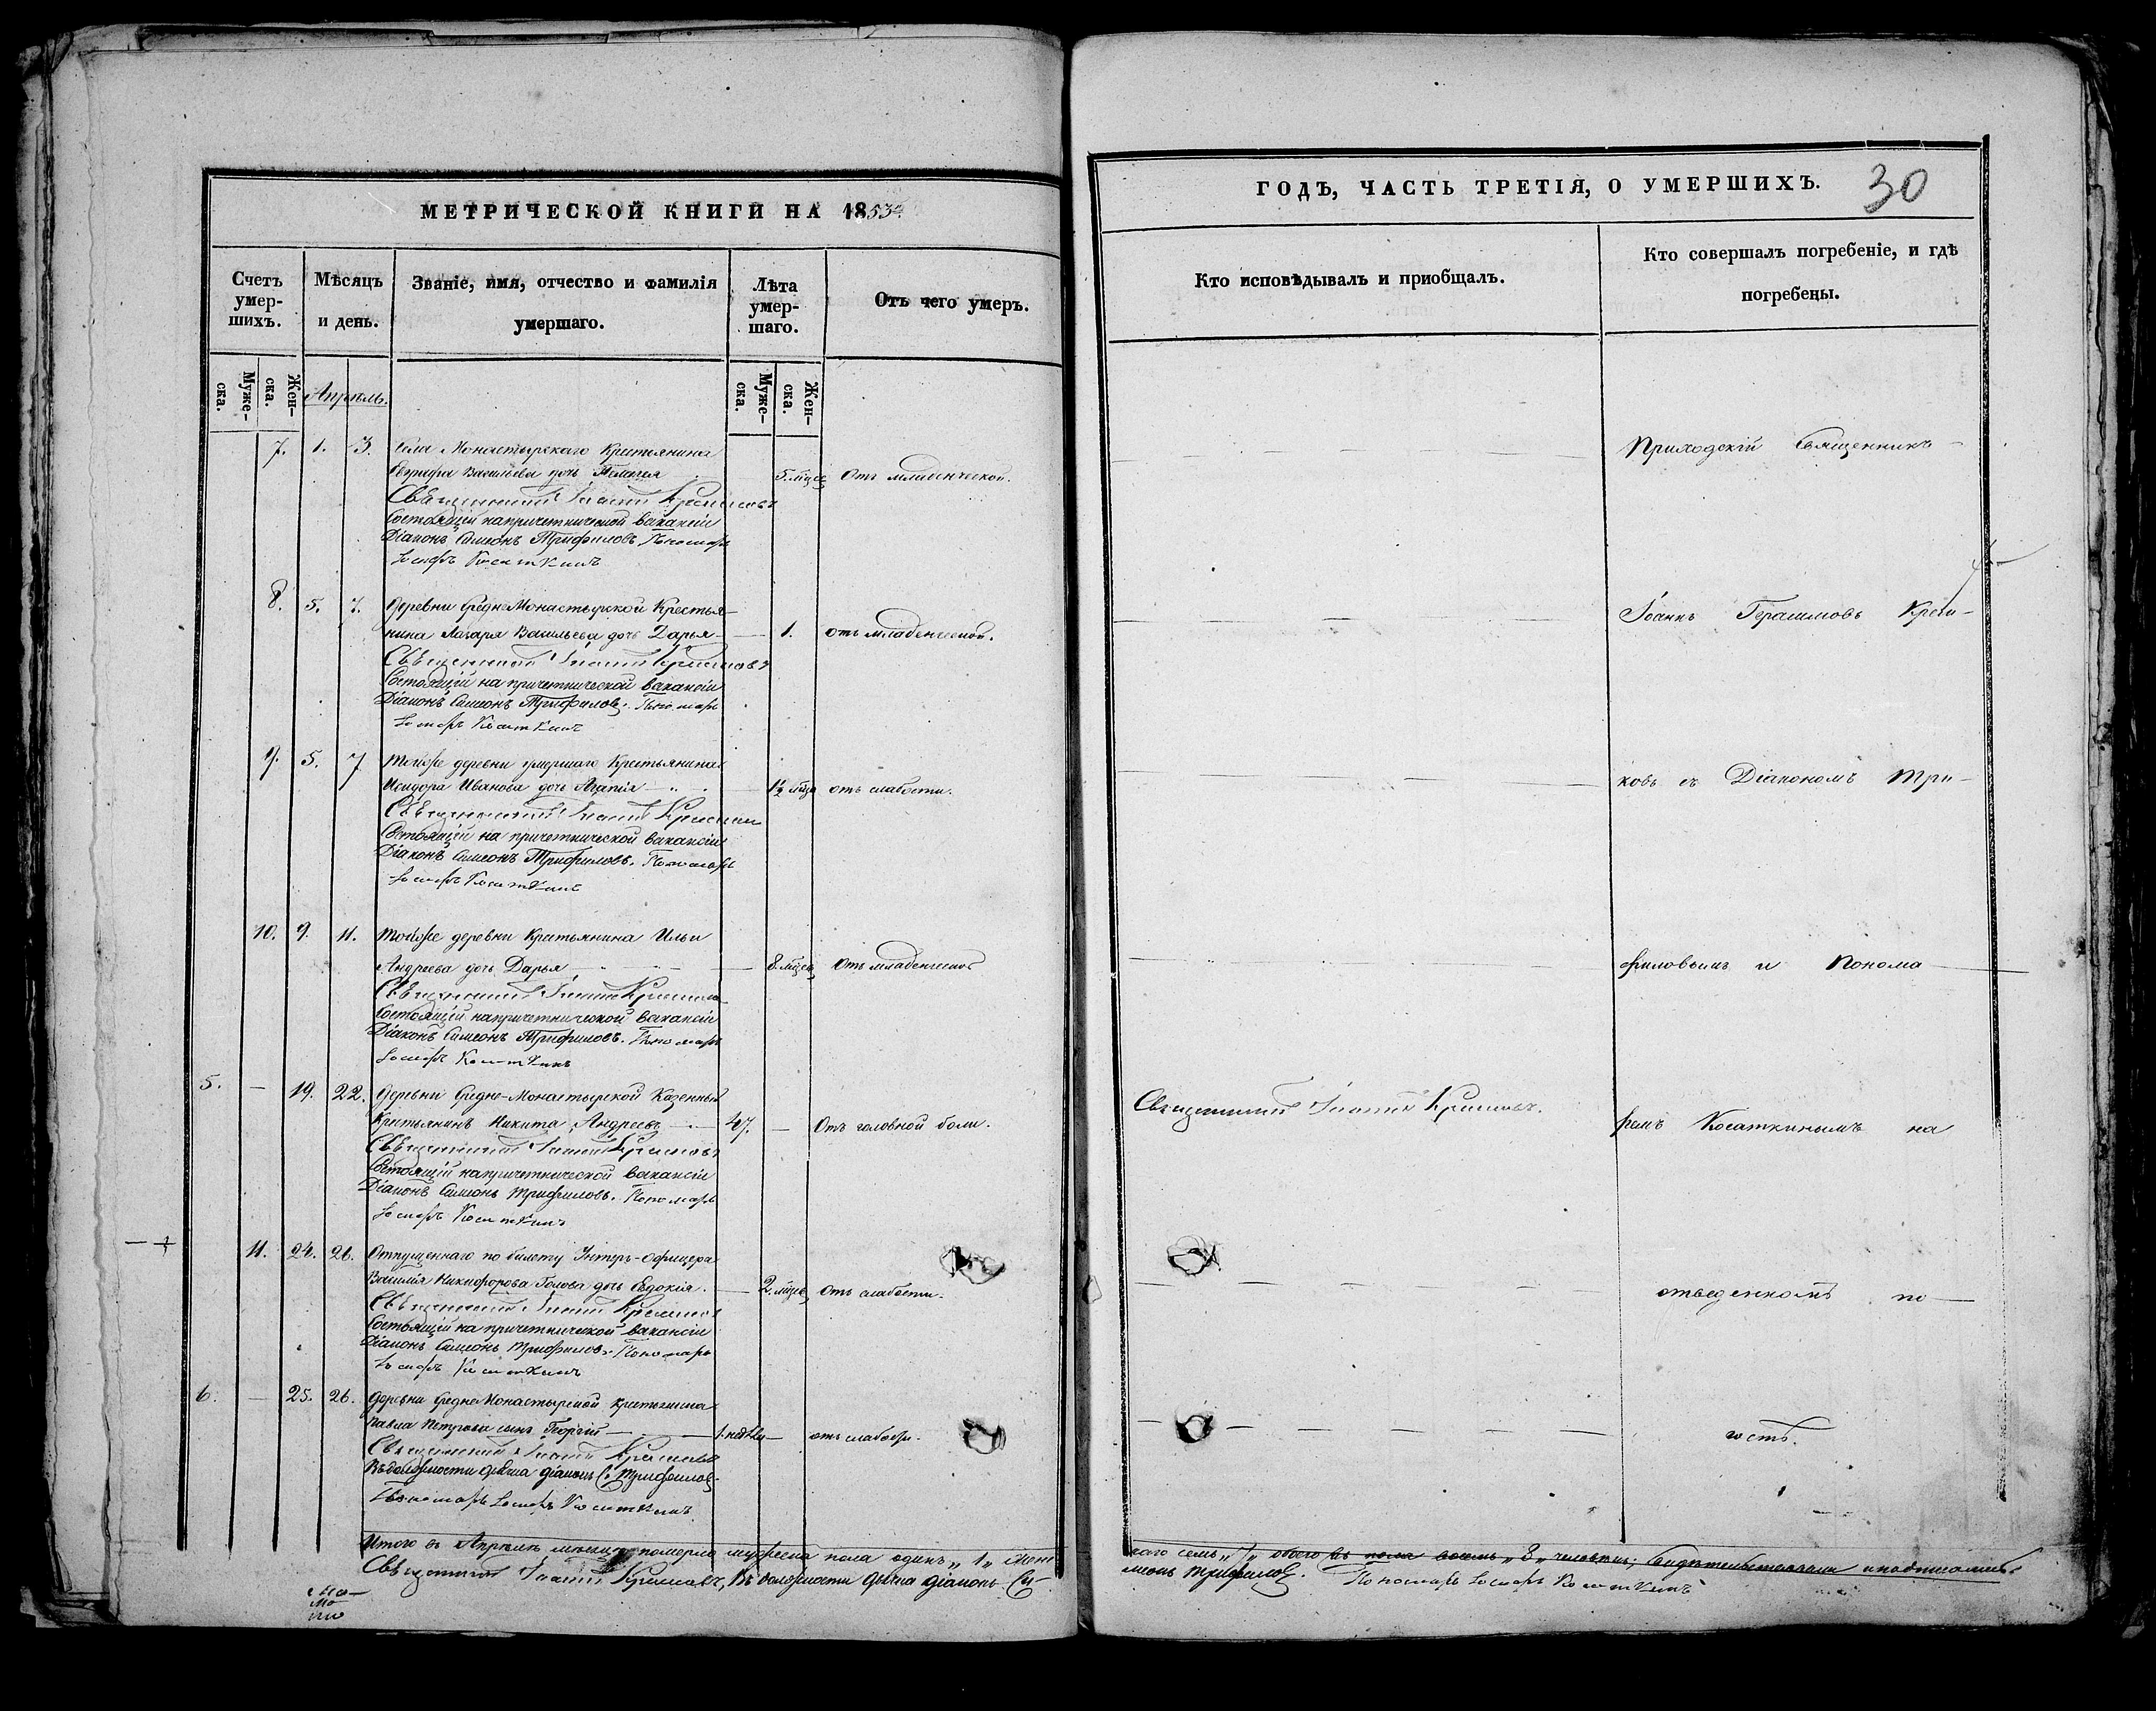 МЕТРИЧЕСКОЙ КНИГИ НА 1853
Счетъ умер-шихъ.
Мѣсяцъ и день.
Званіе, имя, отчество и фамилія умершаго.
Лѣта умер-шаго.
Отъ чего умеръ.
Муже-ска.
Жен-ска.
Муже-ска.
Жен-ска.
Апрѣль.
7. 1. 3. Села Монастырскаго Крестьянина
Васильева дочь Пелагея 5. мцев Отъ младенческой.
Священникъ Іоаннъ
Состоящій на причетнической вакансіи
Діаконъ Симеонъ Трифиловъ. Пономарь
Іосифъ Косаткинъ
8. 5. 7. Деревни СреднеМонастырской Крестья-
нина Лазаря Васильева дочь Дарья 1. отъ младенческой.
Священникъ Іоаннъ
Состоящій на причетнической вакансіи
Діаконъ Симеонъ Трифиловъ. Пономарь
Іосифъ Косаткинъ
9. 5. 7 Тойже деревни умершаго Крестьянина
Исидора Иванова дочь Агапія 1½ мца отъ слабости.
Священникъ Іоаннъ
Состоящій на причетнической вакансіи
Діаконъ Симеонъ Трифиловъ. Пономарь
Іосифъ Косаткинъ
10. 9. 11. Тойже деревни Крестьянина Ильи
Андреева дочь Дарья 8. мцев Отъ младенческой
Священникъ Іоаннъ
Состоящій на причетнической вакансіи
Діаконъ Симеонъ Трифиловъ. Пономарь
Іосифъ Косаткинъ
5. — 19. 22. Деревни Средне-Монастырской Казенный
Крестьянинъ Никита Андреевъ 47. — Отъ головной боли.
Священникъ Іоаннъ
Состоящій на причетнической вакансіи
Діаконъ Симеонъ Трифиловъ. Пономарь
Іосифъ Косаткинъ
11. 24. 26. Отпущеннаго по билету Унтеръ-Офицера
Василія Никифорова дочь Евдокія. 2. мцев Отъ слабости.
Священникъ Іоаннъ
Состоящій на причетнической вакансіи
Діаконъ Симеонъ Трифиловъ. Пономарь
Іосифъ Косаткинъ
6. — 25. 26. Деревни СреднеМонастырской крестьянина
Павла Петрова сынъ Георгій 1. недѣли — отъ слабости.
Священникъ Іоаннъ
Въ должности Дьячка діаконъ С. Трифиловъ
Пономарь Іосифъ Косаткинъ
Итого въ Апрѣлѣ мѣсяцѣ померло мужеска пола одинъ „ 1 „ жен
Священникъ Іоаннъ Въ должности Дьячка діаконъ Си
ГОДЪ, ЧАСТЬ ТРЕТІЯ, О УМЕРШИХЪ. 30
Кто исповѣдывалъ и приобщалъ.
Кто совершалъ погребеніе, и гдѣ погребены.
Приходскій Священникъ
Іоаннъ Герасимовъ
ковъ съ Діакономъ Три-
филовымъ и Понома
Священникъ Іоаннъ
ремъ Косаткинымъ на
отведенномъ по-
гостѣ.
скаго семь „ 7 „ обоего пола восемь „ 8 „ человѣкъ;
меонъ Трифиловъ. Пономарь Іосифъ Косаткинъ